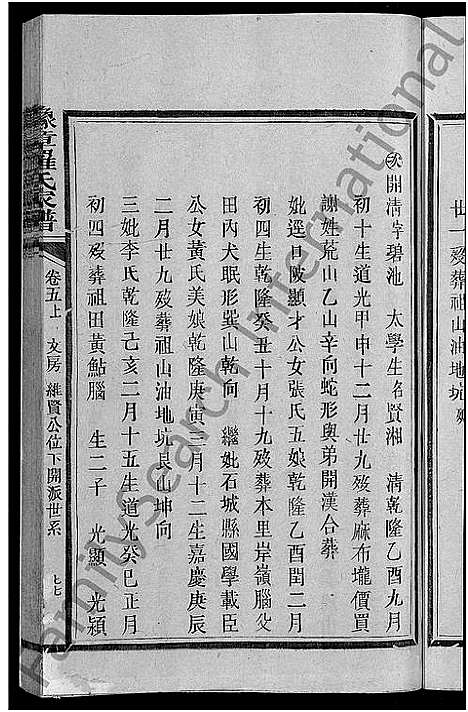 廿一歿葬祖山油地坑
次開清字碧池　太學生名賢湘　清乾隆乙酉九月
初十生道光甲申十二月廿九歿葬麻布壠價買
謝姓荒山乙山辛向蛇形與弟開漢合葬
妣逕口陂顯才公女張氏五娘乾隆乙酉閏二月
初四生乾隆癸丑十月十九歿葬本里岸嶺腦父
田內犬眠形巽山乾向　繼妣石城縣國學載臣
公女黃氏美娘乾隆庚寅　月十二生嘉慶庚辰
二月廿九歿葬祖山油地坑艮山坤向
三妣李氏乾隆己亥二月十五生道光癸巳正月
初四歿葬祖田黃鮎腦　生二子　光顯　光穎
豫章羅氏家譜
卷五上　文房　維賢公位下開派世系　七七
FamilySearch International